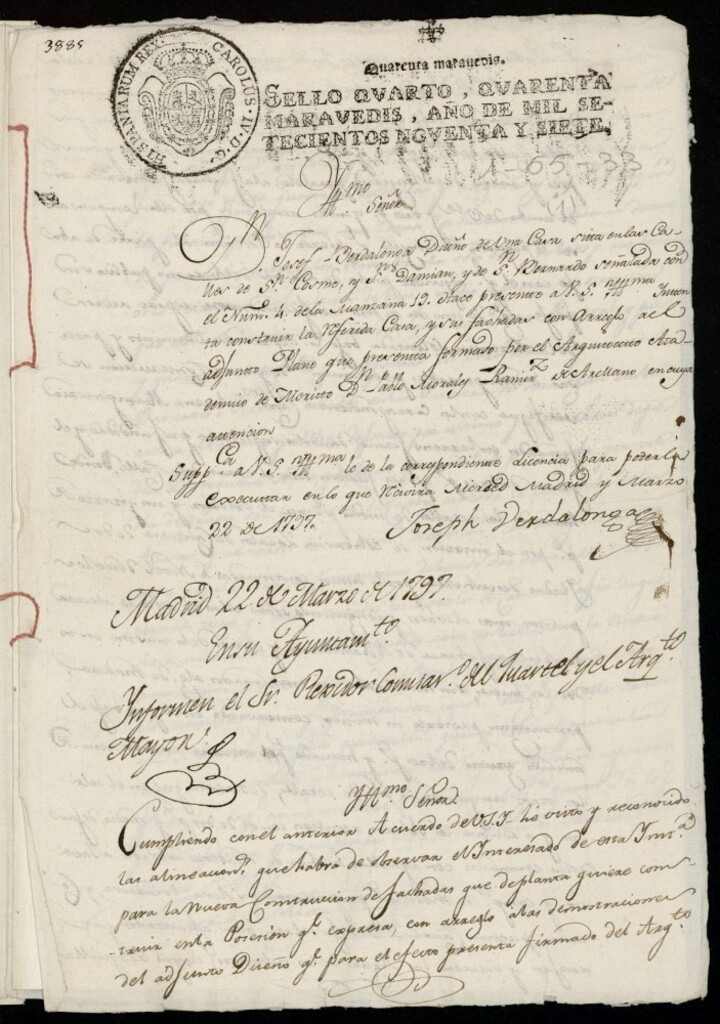 3885
HISPANIARUM REX. CAROLUS. IV. D. G.
Quarenta maravedis.
SELLO QVARTO, QVARENTA
MARAVEDIS, AÑO DE MIL SE-
TECIENTOS NOVENTA Y SIETE.
1-55-33
(1)
Yllmo Señor
Dn. Josef Berdalonga Dueño de una Casa sita en las Ca-
lles de Sn. Cosme, y Sn. Damian, y de Sn. Bernardo señalada con
el Num. 4. de la Manzana 19. Hace presente a V. S. Yllma Inten
ta construir la referida Casa, y sus fachadas con Arreglo a el
adjuncto Plano que presenta formado por el Arquitecto Aca-
demico de Merito Dn. Pablo Morales Ramirz. de Arellano en cuya
atencion
Suppca. a V. S. Yllma le de la correspondiente Licencia para poderla
executtar en lo que recivira Merced Madrid y Marzo
22 de 1797.
Joseph Verdalonga
Madrid 22 de Marzo de 1797.
En su Ayuntamto
Informen el Sr. Rexidor Comisar.o del Quartel y el Arqto
Mayor.
Yllmo Señor
Cumpliendo con el anterior Acuerdo de V.S.I. he visto y reconocido
las alineacion.s que habrá de observar el Interesado de esta Ynsta.
para la Nueva Construccion de fachadas que de planta quiere cons-
-truir en la Posesión q.e expresa, con arreglo á las demostraciones
del adjunto Diseño q.e para el efecto presenta firmado del Arqto